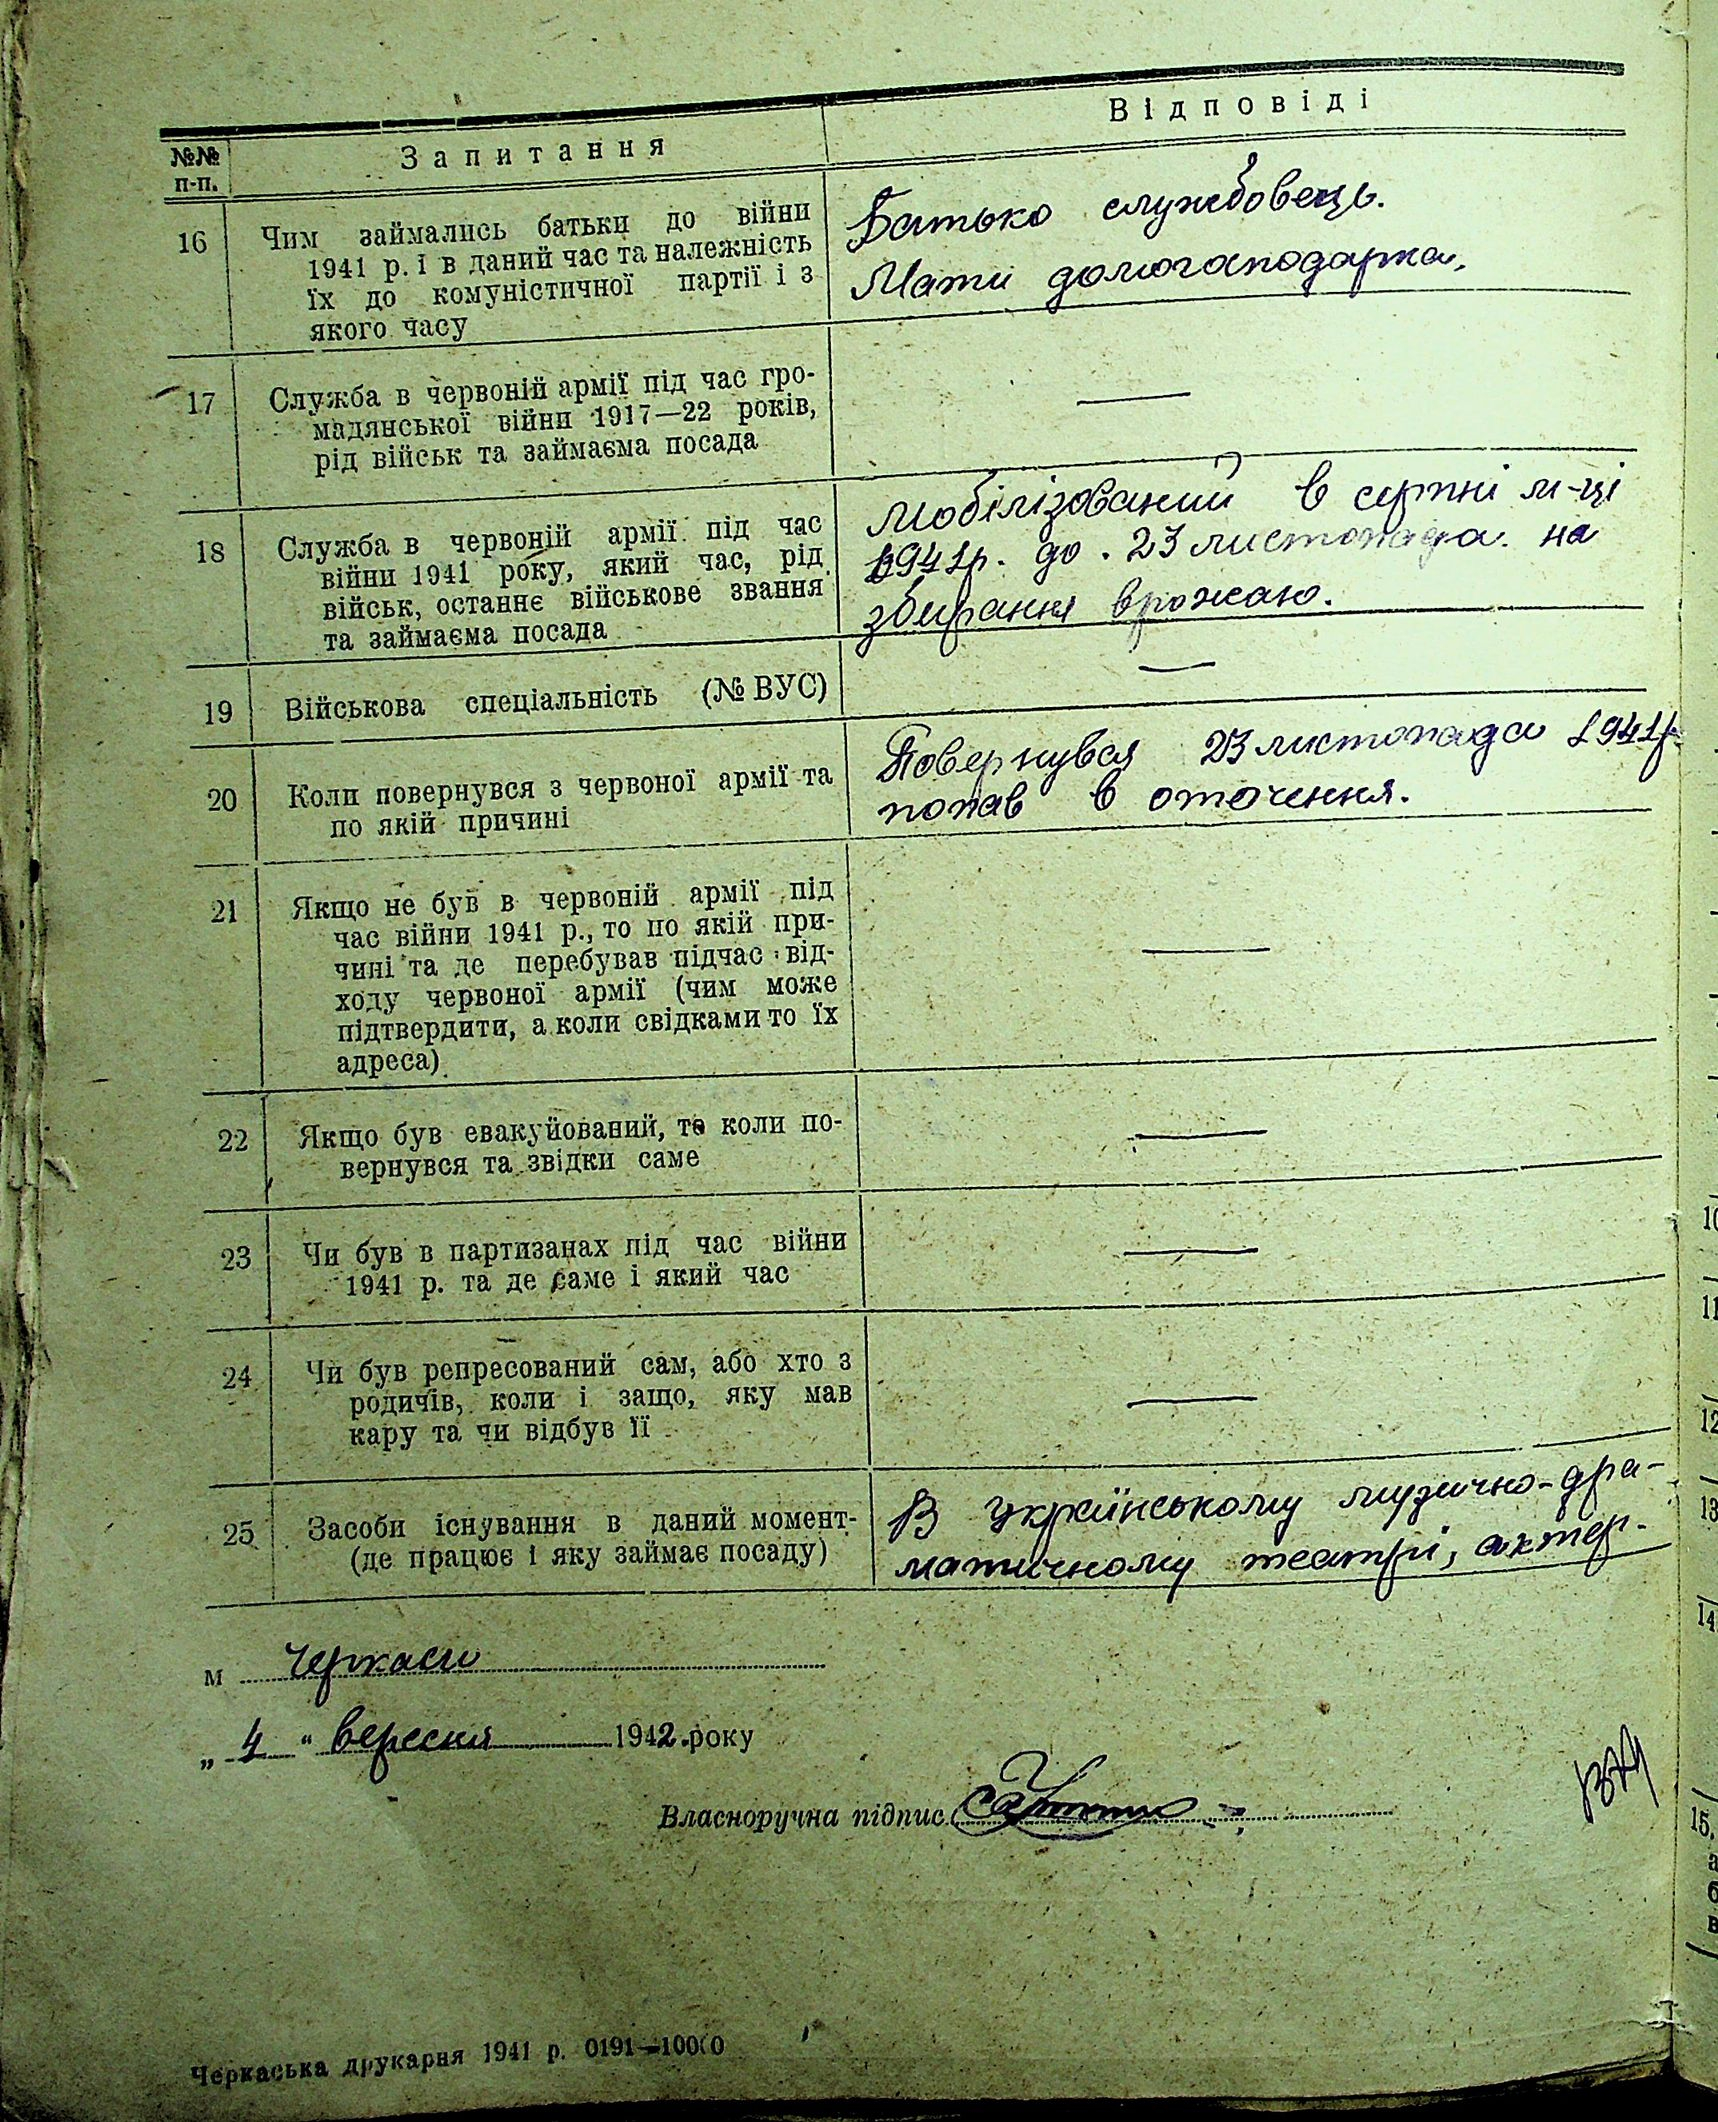 №№ п-п.
Запитання
Відповіді
16
Чим займались батьки до війни
1941 р. і в даний час та належність
їх до комуністичної партії і з
якого часу
Батько службовець.
Мати домогосподарка.
17
Служба в червоній армії під час гро-
мадянської війни 1917—22 років,
рід військ та займаєма посада
—
18
Служба в червоній армії під час
війни 1941 року, який час, рід
військ, останнє військове звання
та займаєма посада
Мобілізований в серпні м-ці
1941р. до 23 листопада на
збирання врожаю.
19
Військова спеціальність (№ ВУС)
—
20
Коли повернувся з червоної армії та
по якій причині
Повернувся 23 листопада 1941р
попав в оточення.
21
Якщо не був в червоній армії під
час війни 1941 р., то по якій при-
чині та де перебував підчас від-
ходу червоної армії (чим може
підтвердити, а коли свідками то їх
адреса)
—
22
Якщо був евакуйований, то коли по-
вернувся та звідки саме
—
23
Чи був в партизанах під час війни
1941 р. та де саме і який час
—
24
Чи був репресований сам, або хто з
родичів, коли і защо, яку мав
кару та чи відбув її
—
25
Засоби існування в даний момент-
(де працює і яку займає посаду)
В українському музично-дра-
матичному театрі, актер.
м Черкаси
„ 4 " вересня 1942 року
Власноручна підпис
Черкаська друкарня 1941 р. 0191—10000
10
11
12
13
14
15.
а
б
в